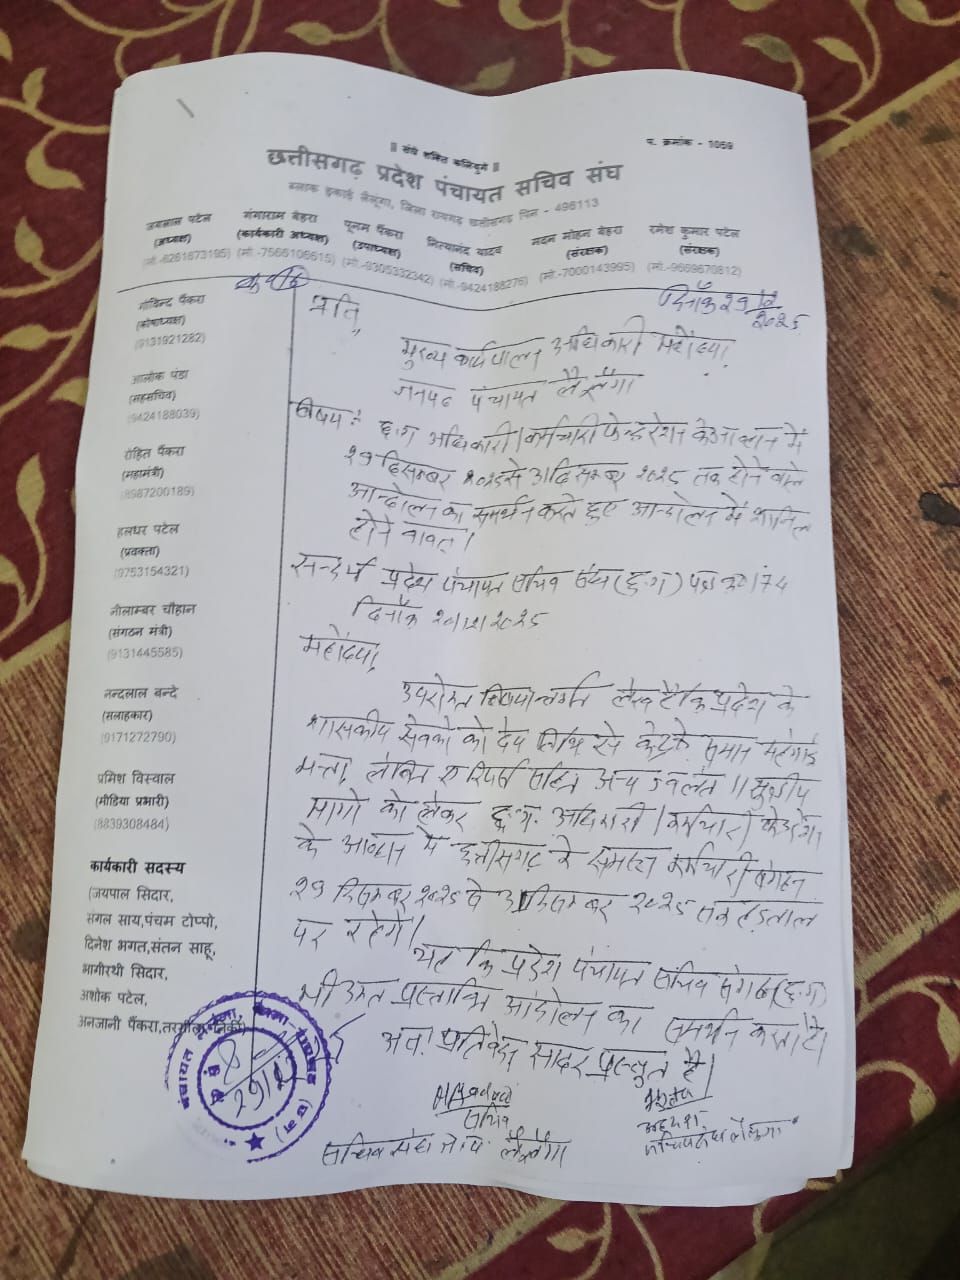 || संघे शक्ति कलियुगे ||
प. क्रमांक - 1059
छत्तीसगढ़ प्रदेश पंचायत सचिव संघ
ब्लाक इकाई लैलूंगा, जिला रायगढ़ छत्तीसगढ़ पिन - 496113
जयलाल पटेल
(अध्यक्ष)
(मो.-6261673195)
गंगाराम बेहरा
(कार्यकारी अध्यक्ष)
(मो.-7566106615)
पूनम पैंकरा
(उपाध्यक्ष)
(मो.-9305332342)
नित्यानंद यादव
(सचिव)
(मो.-9424188276)
मदन मोहन बेहरा
(संरक्षक)
(मो.-7000143995)
रमेश कुमार पटेल
(संरक्षक)
(मो.-9669670812)
दिनाँक २९/१२/२०२५
गोविन्द पैंकरा
(कोषाध्यक्ष)
(9131921282)
आलोक पंडा
(सहसचिव)
(9424188039)
रोहित पैंकरा
(महामंत्री)
(8987200189)
हलधर पटेल
(प्रवक्ता)
(9753154321)
नीलाम्बर चौहान
(संगठन मंत्री)
(9131445585)
नन्दलाल बन्दे
(सलाहकार)
(9171272790)
प्रमिश विस्वाल
(मीडिया प्रभारी)
(8839308484)
कार्यकारी सदस्य
(जयपाल सिदार,
संगल साय,पंचम टोप्पो,
दिनेश भगत,संतन साहू,
भागीरथी सिदार,
अशोक पटेल,
अनजानी पैंकरा,
प्रति,
मुख्य कार्यपालन अधिकारी महोदया
जनपद पंचायत लैलूँगा
विषय : छ.ग अधिकारी/कर्मचारी फेडरेशन के आव्हान में
२९ दिसम्बर २०२५ से ३१ दिसम्बर २०२५ तक होने वाले
आन्दोलन का समर्थन करते हुए आन्दोलन में शामिल
होने बावत।
सन्दर्भ प्रदेश पंचायत सचिव संघ (छ.ग) पत्र क्र० 174
दिनाँक
महोदया,
उपरोक्त विषयान्तर्गत लेख है कि प्रदेश के
शासकीय सेवकों को देय तिथि से केन्द्र के समान महंगाई
भत्ता, लंबित एरियर्स सहित अन्य ज्वलंत ११ सूत्रीय
मांगो को लेकर छ.ग. अधिकारी/कर्मचारी फेडरेशन
के आव्हान में छत्तीसगढ़ के समस्त कर्मचारी संगठन
२९ दिसम्बर २०२५ से ३१ दिसम्बर २०२५ तक हड़ताल
पर रहेंगे।
यह कि प्रदेश पंचायत सचिव संगठन (छ.ग)
भी उक्त प्रस्तावित आंदोलन का समर्थन करता है।
अतः प्रतिवेदन सादर प्रस्तुत है।
सचिव
सचिव संघ ज.पं. लैलूँगा
अध्यक्ष
सचिव संघ लैलूंगा